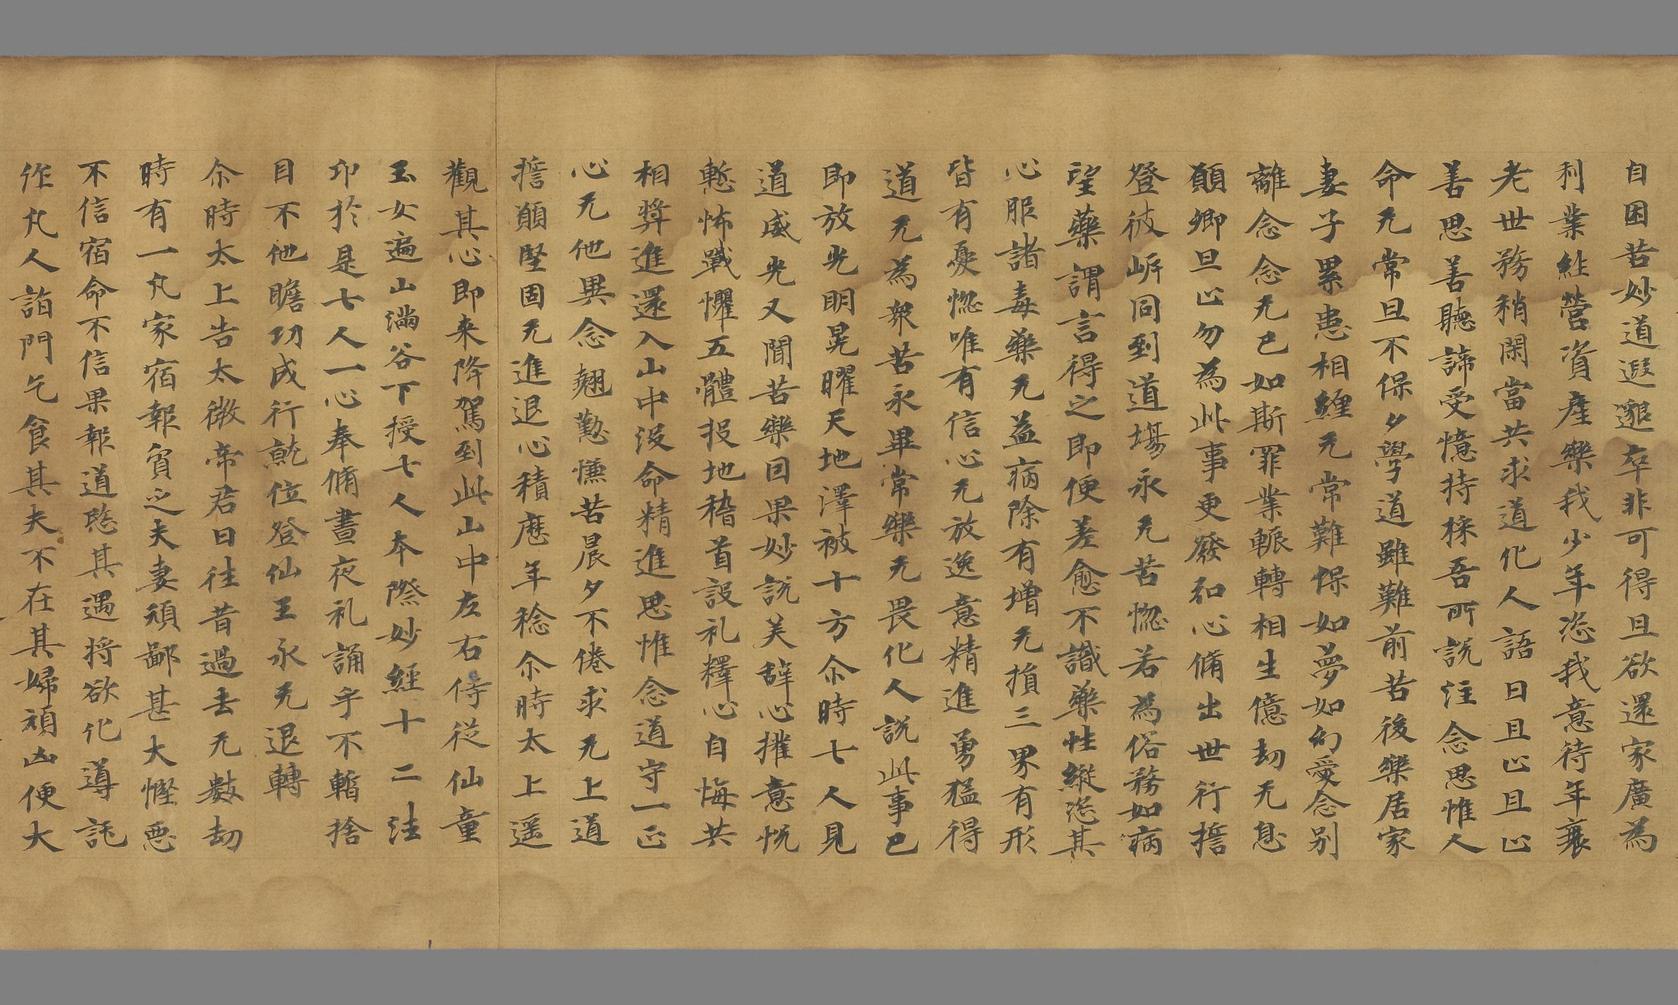 自困苦妙道遐邈卒非可得且欲還家廣為
利業經營資產樂我少年恣我意待年蓑
老世務稍閑當共求道化人語曰且止且止
善思善聽諦受憶持採吾所說注念思惟人
命无常旦不保夕學道雖難前苦後樂居家
妻子累患相纏无常難保如夢如幻愛念別
離念念无已如斯罪業輾轉相生億劫无息
願卿且止勿為此事更發初心脩出世行擔
登彼岍同到道場永无苦惚若為俗務如病
望藥謂言得之即便差愈不識藥性縱恣其
心服諸毒藥无益病除有增无損三界有形
皆有憂惚唯有信心无放逸意精進勇猛得
道无為眾苦永畢常樂无畏化人說此事已
即放光明晃曜天地澤被十方尒時七人見
道威光又聞苦樂因果妙說美辭心摧意恱
慙怖戰懼五體投地稽首設礼釋心自悔共
相獎進還入山中沒命精進思惟念道守一正
心无他異念翹懃慊苦晨夕不倦求无上道
擔願堅固无進退心積應年稔尒時太上遥
觀其心即来降駕到此山中左右侍從仙童
玉女遍山滿谷下授七人本際妙經十二法
印於是七人一心奉脩晝夜礼誦手不蹔捨
目不他瞻功成行就位登仙王永无退轉
尒時太上告太微帝君曰往昔過去无數劫
時有一凡家宿報貧之夫妻頑鄙甚大慳惡
不信宿命不信果報道愍其遇將欲化導託
作凡人詣門乞食其夫不在其婦頑凶便大